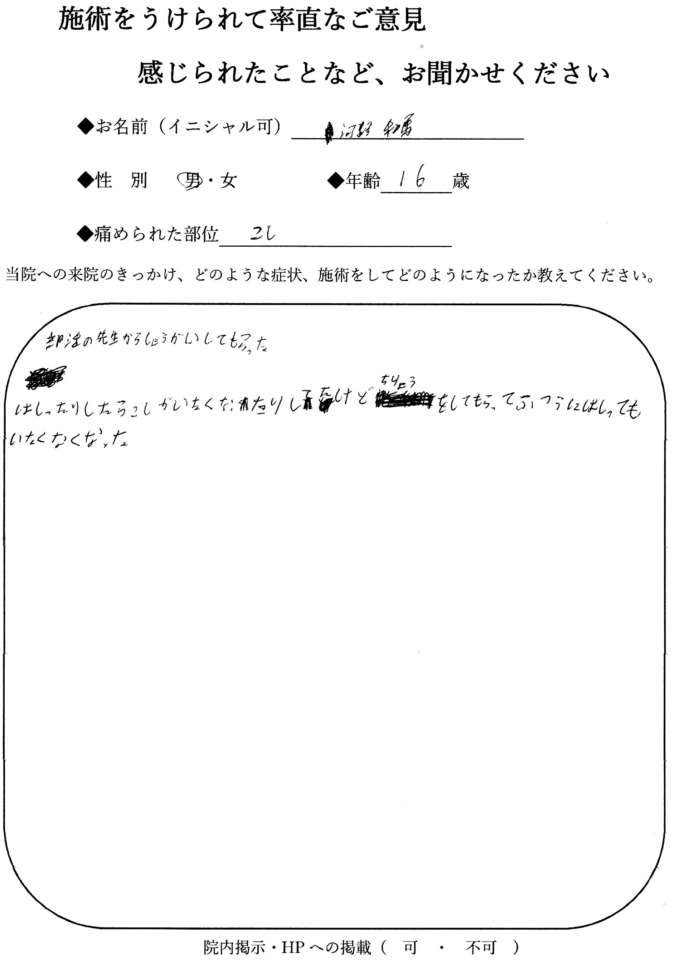 施術をうけられて率直なご意見
感じられたことなど、お聞かせください
◆お名前（イニシャル可）
◆性 別 男・女 ◆年齢 16 歳
◆痛められた部位 こし
当院への来院のきっかけ、どのような症状、施術をしてどのようになったか教えてください。
部活の先生からしょうかいしてもらった
はしったりしたらこしがいたくなったりしてたけど ちりょうをしてもらってふつうにはしっても
いたくなくなった
院内掲示・HPへの掲載（ 可 ・ 不可 ）